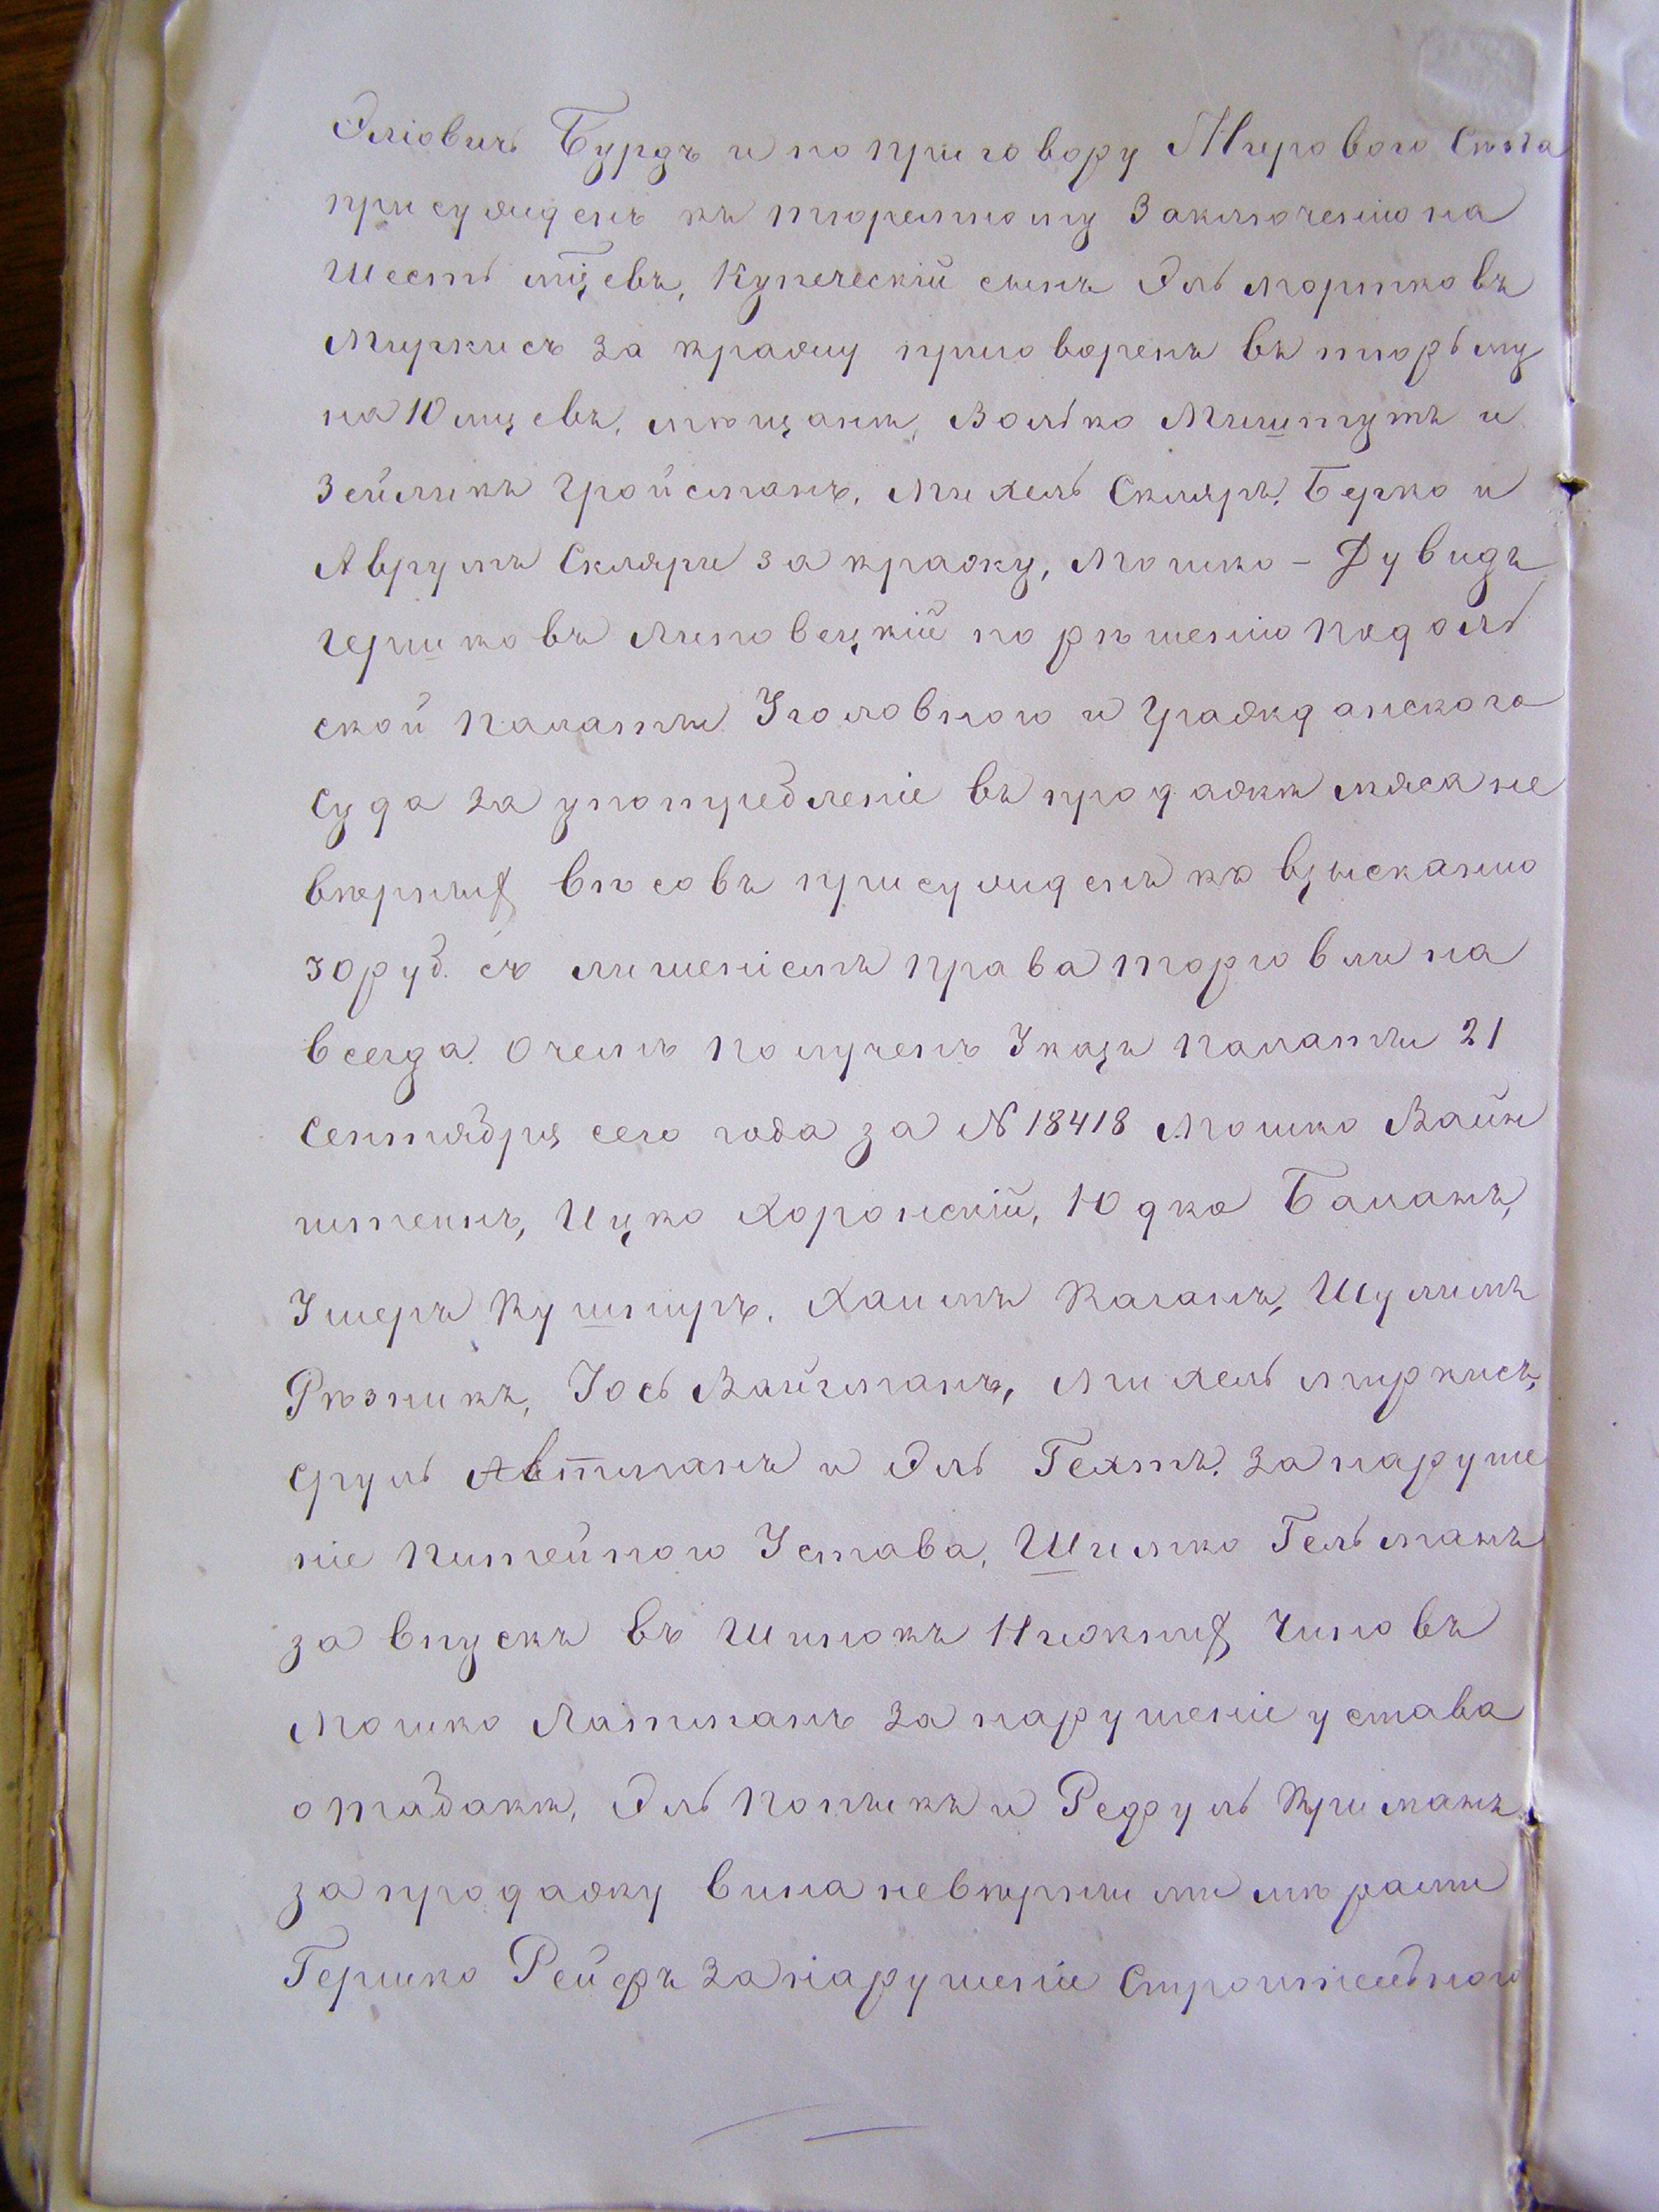 Эліовичъ Бурдъ и по приговору Мироваго Съѣзда
присужденъ къ тюремному Заключенію на
Шесть мцевъ, Купеческій сынъ Эль Мортковъ
Миркисъ за кражу приговоренъ въ тюрьму
на 10 мцевъ, мѣщане, Волько Мишпутъ и
Зейликъ Гройсманъ, Михель Скляръ, Берко и
Аврумъ Скляри за кражу, Мошко - Дувидъ
Гершковъ Липовецкій по рѣшенію Подоль
ской Палаты Уголовного и Гражданского
Суда за употребленіе въ продажѣ мяса не
вѣрныхъ вѣсовъ присужденъ къ взысканію
30 руб. съ лишеніемъ права торговли на
всегда. О чемъ получень Указъ Палаты 21
Сентября сего года за № 18418 Мошко Вайн
штейнъ, Ицко Хоронскій, Юдко Баланъ,
Ушеръ Кушниръ, Хаимъ Каганъ, Шулимъ
Рѣзникъ, Іось Вайсманъ, Михель Миркисъ,
Сруль Автманъ и Эль Гехтъ. За наруше
ніе Питейного Устава, Шимко Гельманъ
за впускъ въ Шинокъ Нижныхъ Чиновъ
Мошко Лаптманъ за нарушеніе устава
о табакѣ, Эль Потыкъ и Рефуль Криманъ
за продажу вина невѣрными мѣрами
Гершко Рейфъ за нарушеніе Строительного